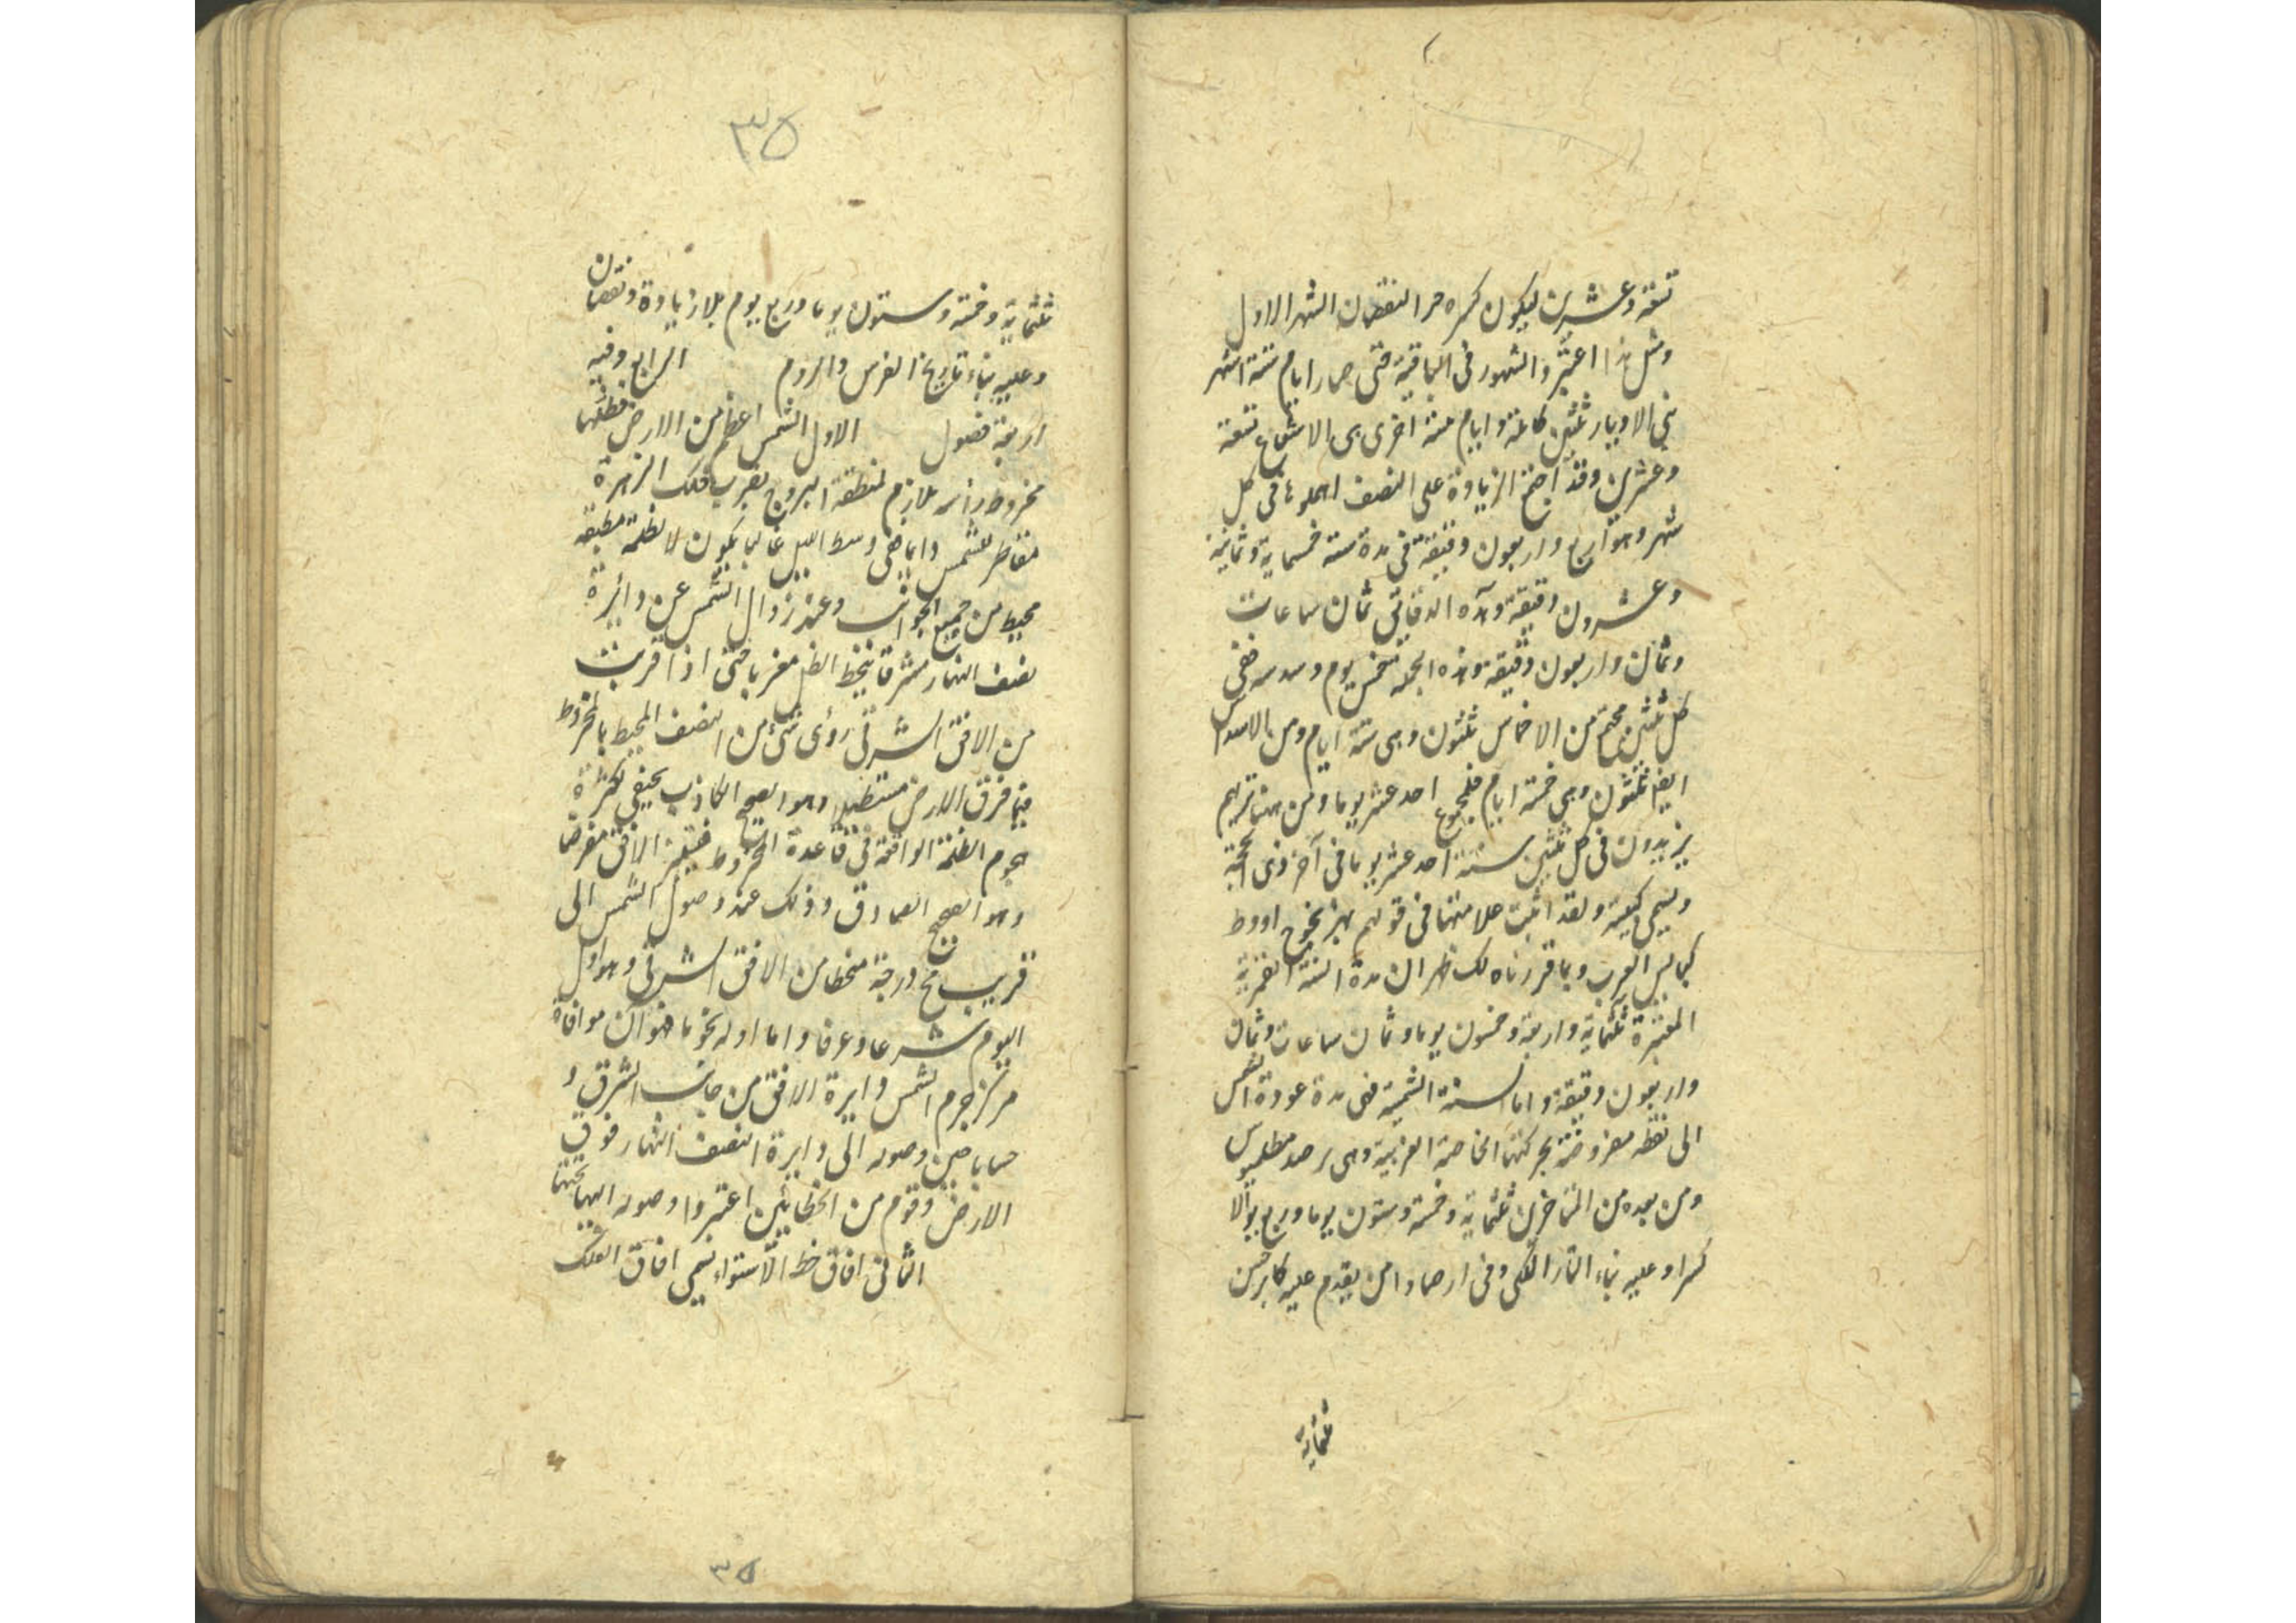 تسعة وعشرين ليكون كسره من النقصان الشهر الاول
ومثل هذا اعتبروا الشهور في الباقية حتى صار ايام ستة اشهر
هي الاوتار ثلثين كاملة وايام ستة اخرى هي الاشفاع تسعة
وعشرين وقد اجتمع الزيادة على النصف اهملوها في كل
شهر وهو اربع واربعون دقيقة في مدة سنة خمسماية وثمانية
وعشرون دقيقة وهذه الدقائق ثمان ساعات
وثمان واربعون دقيقة وهذه الجملة خمس يوم وسدسه ففي
كل ثلثين مجتمع من الاخماس ثلثون وهي ستة ايام ومن الاسداس
ايضا ثلثون وهي خمسة ايام فالمجموع احد عشر يوما ومن هنا تريهم
يزيدون في كل ثلثين سنة احد عشر يوما في آخر ذي الحجة
ويسمى كبيسة ولقد اثبت علامتها في قولهم بهزيجوح ادوط
كبائس العرب وبما قررناه لك ظهر ان مدة السنة القمرية
المعتبرة ثلثماية واربعة وخمسون يوما وثمان ساعات وثمان
واربعون دقيقة واما السنة الشمسية فهي مدة عودة الشمس
الى نقطة مفروضة بحركتها الخاصة الغربية وهي برصد بطلميوس
ومن بعده من المتاخرين ثلثماية وخمسة وستون يوما وربع يوم الا
كسرا وعليه بناء التار الملكي وفي ارصاد من يقدم عليه كابرخس
ثلثماية
٣٥
ثلثماية وخمسة وستون يوما وربع يوم بلا زيادة ونقصان
وعليه بناء تاريخ الفرس والروم الرابع وفيه
اربعة فصول الاول الشمس اعظم من الارض فظلها
مخروط رأسه يلازم لمنطقة البروج بقرب فلك الزهرة
مقاطر للشمس دايما ففي وسط الليل غالبا يكون لا لظلمة مطبقة
محيط من جميع الجوانب وعند زوال الشمس عن دائرة
نصف النهار مشرقا ينحط الظل مغربا حتى اذا قربت
من الافق الشرقي رؤى شئ من النصف المحيط بالمخروط
فيما فرق الارض مستطيلا وهو الصبح الكاذب يختفي لكثرة
هجوم الظلمة الواقعة في قاعدة المخروط فيتميز الافق معرضا
وهو الصبح الصادق وذلك عند وصول الشمس الى
قريب يح درجة منحطا من الافق الشرقي وهو اول
اليوم شرعا وعرفا واما اوله نجوما فهو آن موافاة
مركز جرم الشمس دايرة الافق من جانب الشرق و
حسابا حين وصوله الى دايرة النصف النهار فوق
الارض وقوم من الخطايئن اعتبروا وصوله اليها تحتها
الثاني افاق خط الاستواء يسمى افاق الفلك
٣٥